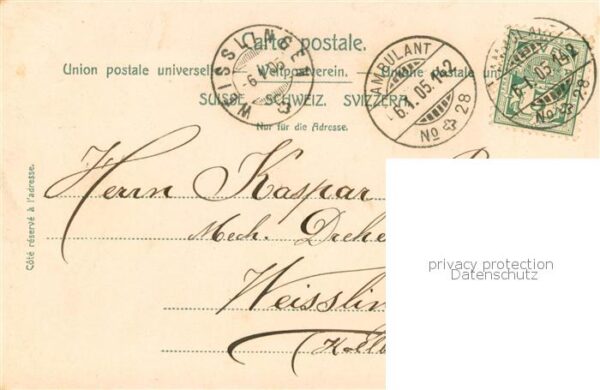 Carte postale.
Union postale universelle. — Weltpostverein. — Unione postale universale
SUISSE. SCHWEIZ. SVIZZERA.
Nur für die Adresse.
WEISSLINGEN
AMBULANT
6.I.05.
No 28
6.I.05.
No 28
Côté réservé à l'adresse.
Herrn Kaspar
Mech. Drehe
Weisslin
privacy protection
Datenschutz